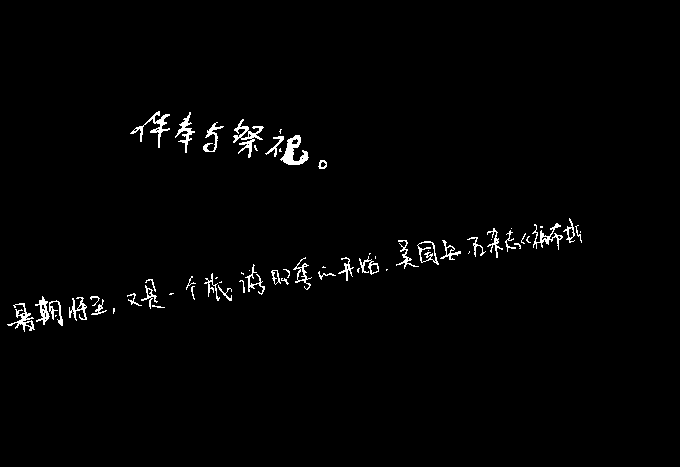 供奉与祭祀。
暑期将至，又是一个旅游旺季的开始，美国杂志《福布斯